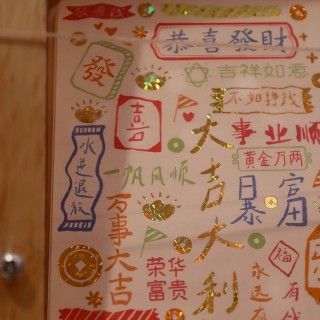 恭喜發財
發
吉祥如意
喜
事业顺
大吉大利
黄金万两
水逆退散
一帆风顺
暴富
万事大吉
荣华富贵
福
永远